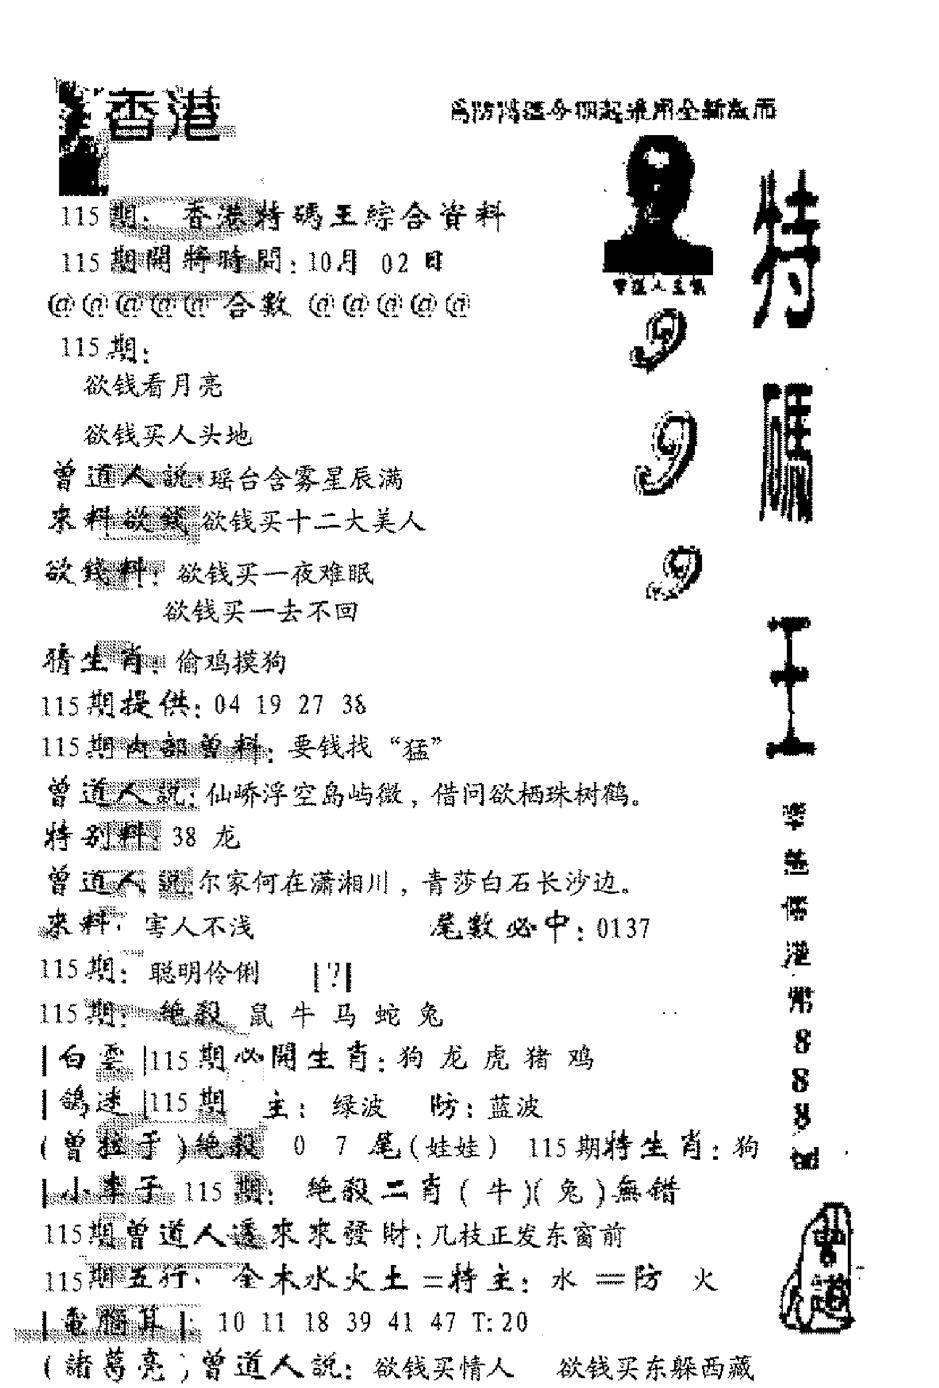 香港
為防偽造今期起采用全新版面
115期: 香港特碼王綜合資料
115期開將時間:10月 02日
@@@@@合數@@@@@
115期:
欲钱看月亮
欲钱买人头地
曾道人説:瑶台含雾星辰满
來料欲錢 欲钱买十二大美人
欲錢料: 欲钱买一夜难眠
欲钱买一去不回
猜生肖: 偷鸡摸狗
115期提供: 04 19 27 38
115期内部曾料: 要钱找“猛”
曾道人説:仙峤浮空岛屿微,借问欲栖珠树鹤。
特别料: 38 龙
曾道人説 尔家何在潇湘川,青莎白石长沙边。
來料: 害人不浅 尾數必中: 0137
115期: 聪明伶俐 |?|
115期: 绝殺 鼠 牛 马 蛇 兔
|白雲|115期必開生肖:狗 龙 虎 猪 鸡
|鴿迷|115期 主: 绿波 防: 蓝波
(曾拉于)绝殺 0 7尾(娃娃) 115期特生肖: 狗
|小李子 115期: 绝殺二肖(牛)(兔)無错
115期曾道人透來來發財:几枝正发东窗前
115期五行: 金木水火土=特主: 水 =防 火
|電腦算|: 10 11 18 39 41 47 T:20
(諸葛亮)曾道人説: 欲钱买情人 欲钱买东躲西藏
999
特碼王
港幣888
曾道